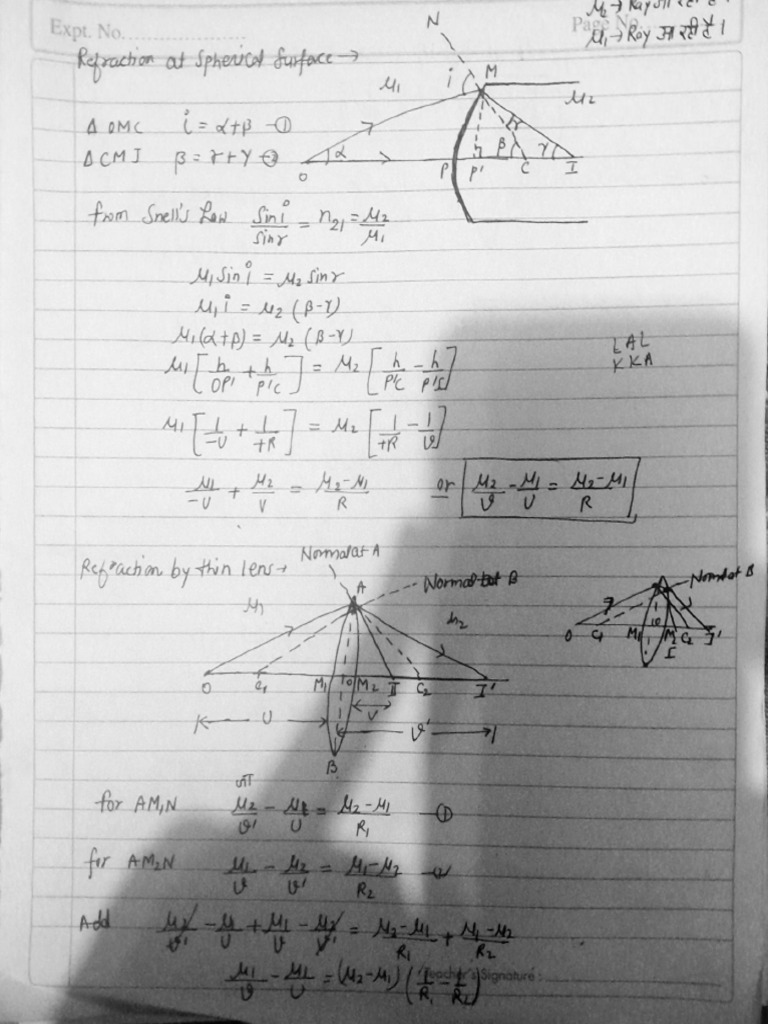 Expt. No.
Page No.
μ₂ → Ray जा रही है।
μ₁ → Ray आ रही है।
Refraction at Spherical Surface →
N
M
i
μ₁
μ₂
r
α
β
γ
O
P
P'
C
I
Δ OMC i = α+β —①
Δ CMI β = r+γ —②
from Snell's Law sin i / sin r = n₂₁ = μ₂/μ₁
μ₁ sin i = μ₂ sin r
μ₁ i = μ₂ (β-γ)
μ₁(α+β) = μ₂ (β-γ)
μ₁ [h/OP' + h/P'C] = μ₂ [h/P'C - h/P'I]
LAL
KKA
μ₁ [1/-U + 1/+R] = μ₂ [1/+R - 1/v]
μ₁/-U + μ₂/V = μ₂-μ₁/R or μ₂/v - μ₁/U = μ₂-μ₁/R
Refraction by thin lens →
Normal at A
A
Normal at B
μ₁
O C₁ M₁ O M₂ I C₂ I'
U
V
v'
B
Normal at B
O C₁ M₁ O M₂ C₂ I'
I
for AM₁N μ₂/v' - μ₁/U = μ₂-μ₁/R₁ —①
for AM₂N μ₁/v - μ₂/v' = μ₁-μ₂/R₂
Add μ₂/v' - μ₁/U + μ₁/v - μ₂/v' = μ₂-μ₁/R₁ + μ₁-μ₂/R₂
μ₁/v - μ₁/U = (μ₂-μ₁) (1/R₁ - 1/R₂)
Teacher's Signature :